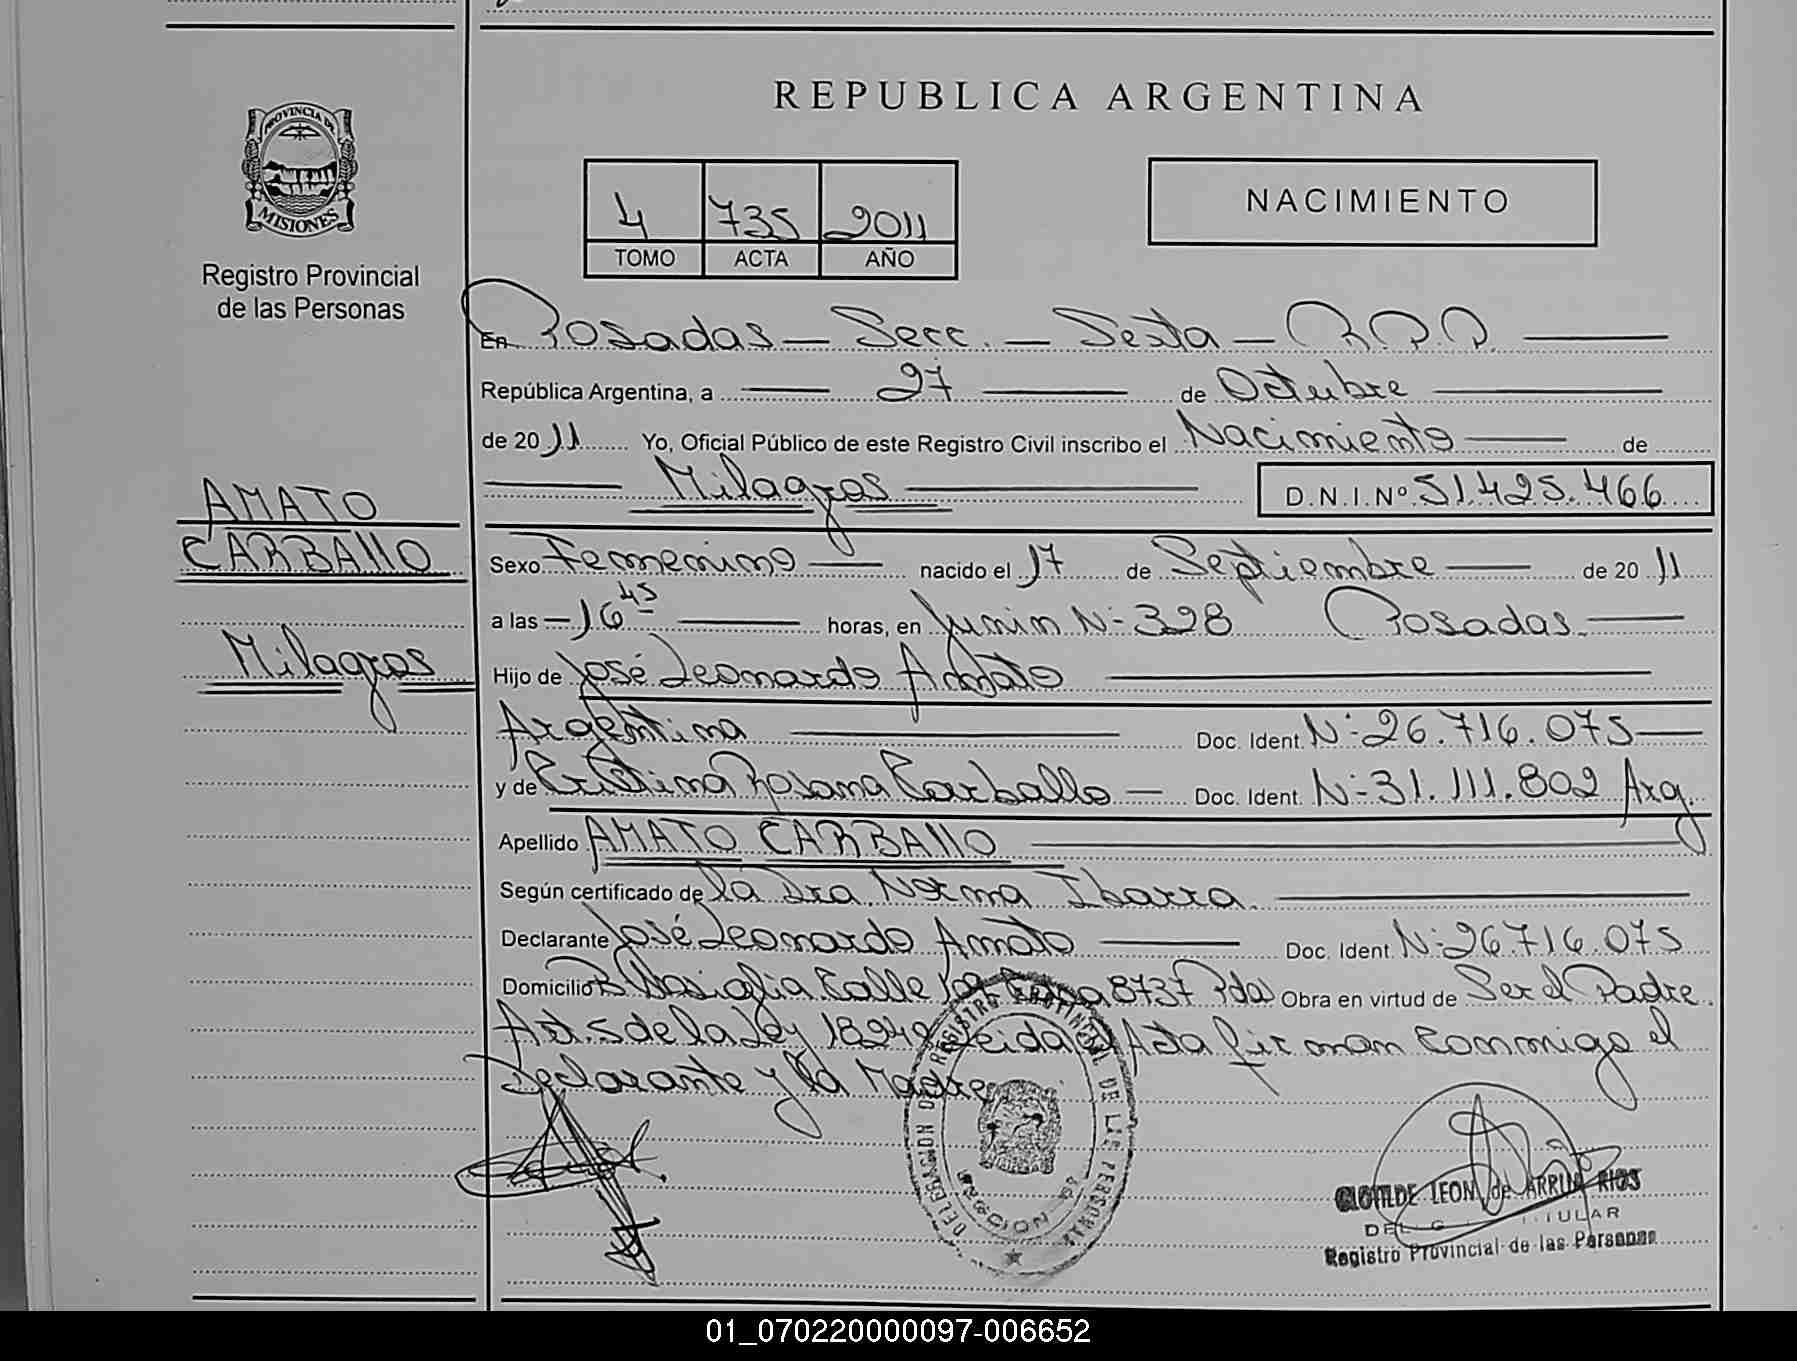 REPUBLICA ARGENTINA
PROVINCIA DE
MISIONES
Registro Provincial
de las Personas
4 735 2011
TOMO ACTA AÑO
NACIMIENTO
En Posadas — Secc. — Sexta — R.P.P.
República Argentina, a 27 de Octubre
de 2011 Yo, Oficial Público de este Registro Civil inscribo el Nacimiento de
Milagros D.N.I.Nº 51.425.466
AMATO
CARBALLO
Milagros
Sexo Femenino nacido el 17 de Septiembre de 2011
a las 16 45 horas, en Junin Nº 328 Posadas.
Hijo de José Leonardo Amato
Argentina Doc. Ident. Nº 26.716.075
y de Cristina Rosana Carballo — Doc. Ident. Nº 31.111.802 Arg.
Apellido AMATO CARBALLO
Según certificado de la Dra. Norma Ibarra.
Declarante José Leonardo Amato Doc. Ident. Nº 26.716.075
Domicilio Calle 8737 Pdas Obra en virtud de Ser el Padre.
Art. 5 de la Ley 18248 Leida el Acta firman conmigo el
Declarante y la Madre.
DELEGACION DEL REGISTRO PROVINCIAL DE LAS PERSONAS
SECCION 6ª
CLOTILDE LEON de ARRUA RIOS
TITULAR
Registro Provincial de las Personas
01_070220000097-006652